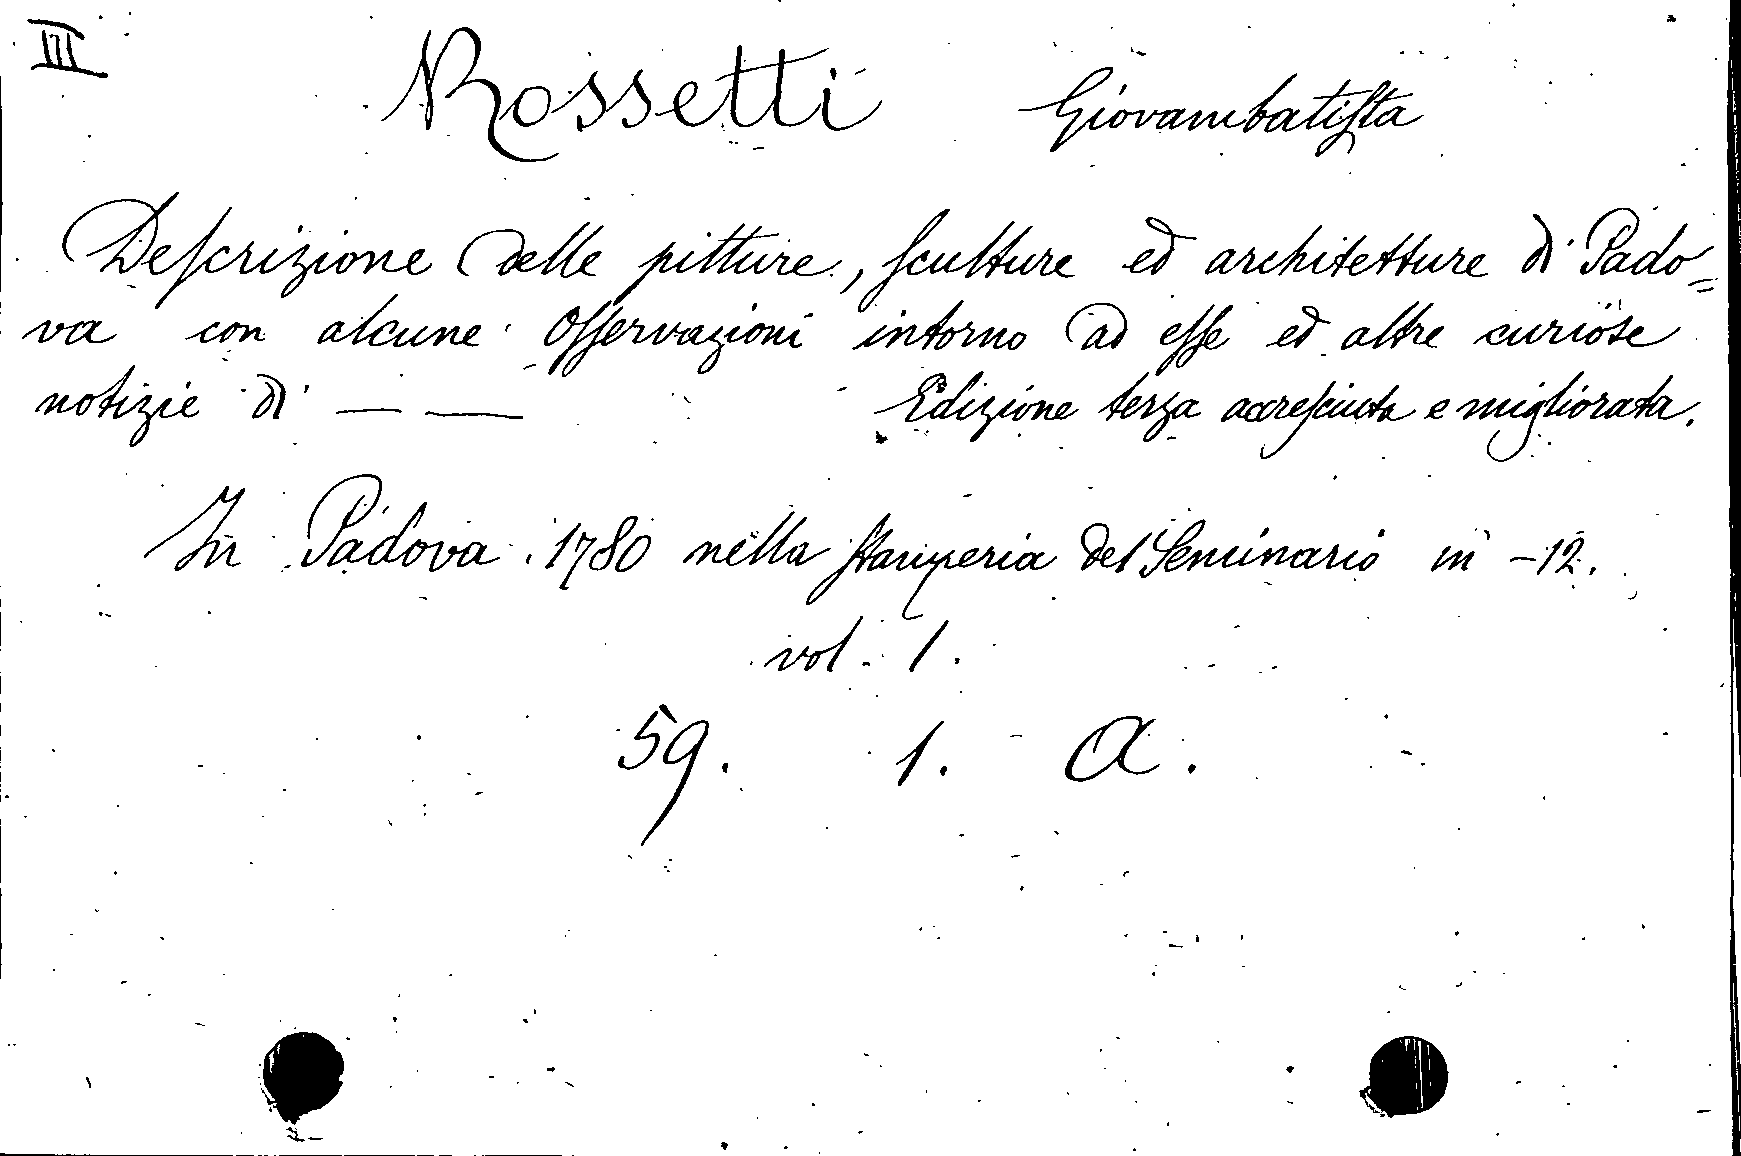 III
Rossetti Giovambatista
Descrizione delle pitture, sculture ed architetture di Pado=
va con alcune Osservazioni intorno ad esse ed altre curiose
notizie di — — Edizione terza accresciuta e migliorata.
In Padova 1780 nella stamperia del Seminario in -12.
vol. 1.
59. 1. A.